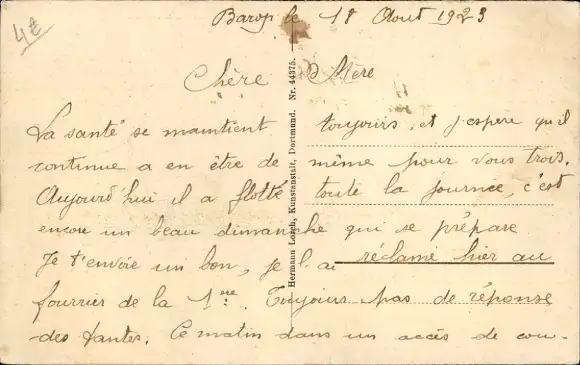 4€
Barop le 18 Aout 1923
Chère Mère
La santé se maintient toujours, et j'espère qu'il
continue a en être de même pour vous trois.
Aujourd'hui il a flotté toute la journée, c'est
encore un beau dimanche qui se prépare
Je t'envoie un bon, je l'ai réclamé hier au
fourrier de la 1ère. Toujours pas de réponse
des tantes. Ce matin dans un accès de cou-
Hermann Lorch, Kunstanstalt, Dortmund. Nr. 44375.